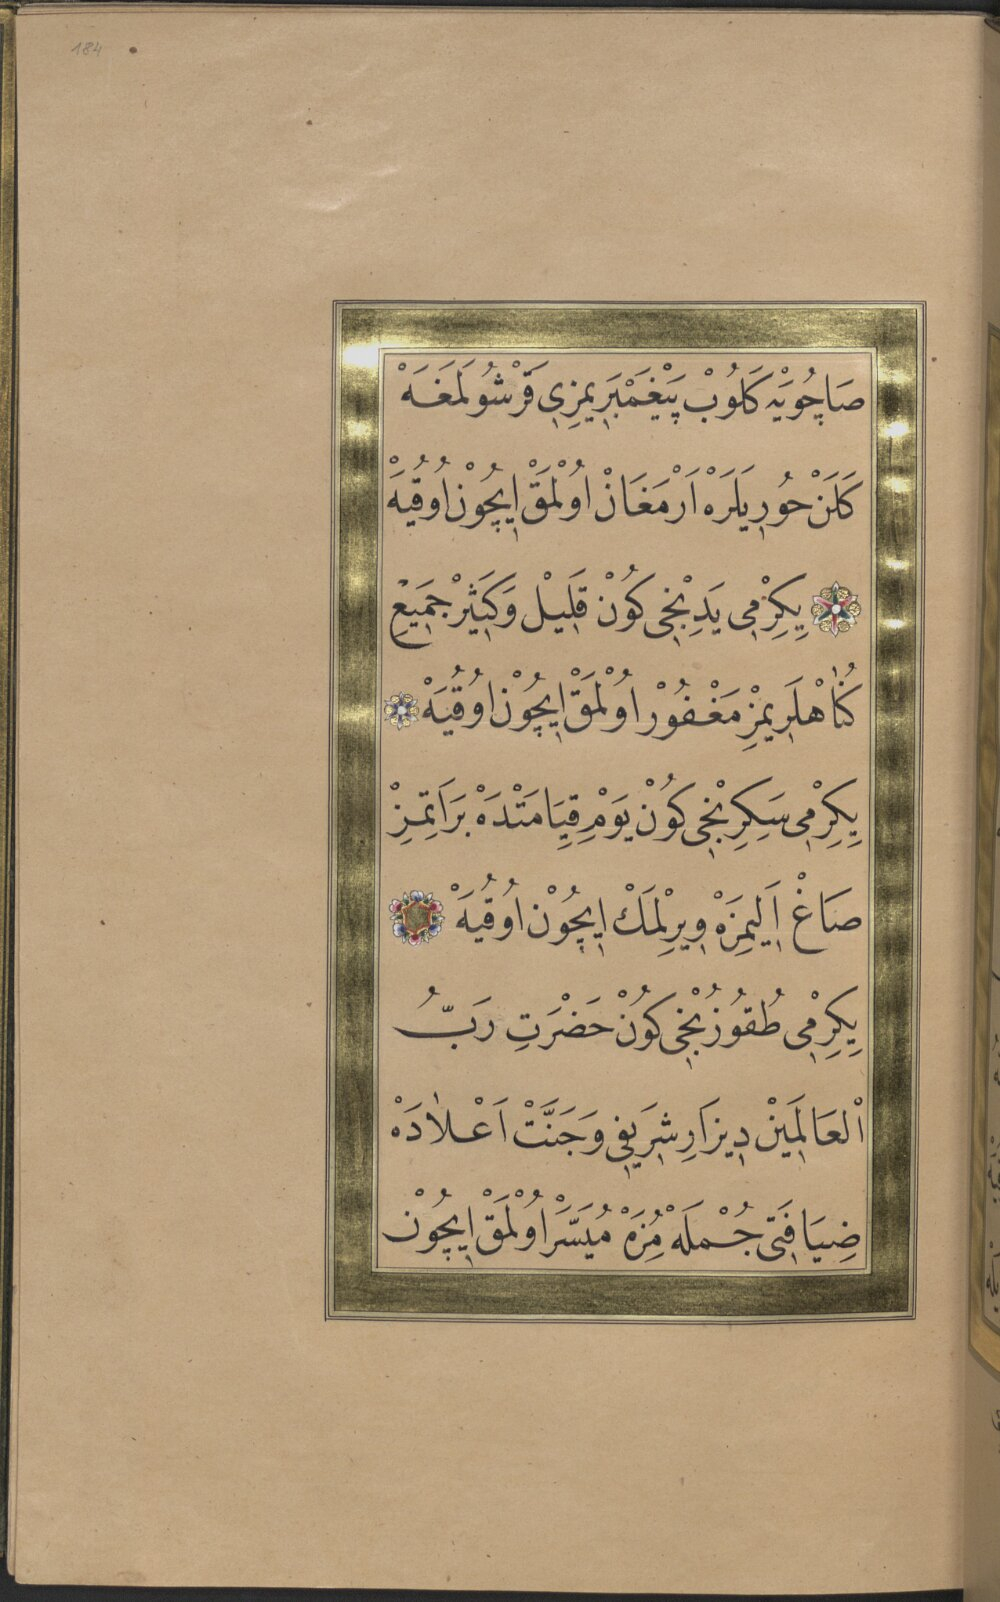 184
صَاچُويَهْ كَلُوبْ پَيْغَمْبَرِيمِزِي قَرْشُولَمَغَهْ
كَلَنْ حُورِيلَرَهْ اَرْمَغَانْ اوُلْمَقْ اِيچُونْ اوُقُيَهْ
يِكِرْمِى يَدِنْجِى كُونْ قَلِيلْ وَكَثِيرْ جَمِيعِ
كُنَاهْلَرِيمِزْ مَغْفُورْ اوُلْمَقْ اِيچُونْ اوُقُيَهْ
يِكِرْمِى سَكِزِنْجِى كُونْ يَوْمِ قِيَامَتْدَهْ بَرَاتِمِزْ
صَاغْ اَلِيمِزَهْ وِيرِلْمَكْ اِيچُونْ اوُقُيَهْ
يِكِرْمِى طُقُوزُنْجِى كُونْ حَضْرَتِ رَبُّ
اْلعَالَمِينْ دِيزَارِ شِرَيفِى وَجَنَّتْ اَعْلاٰدَهْ
ضِيَافَتِى جُمْلَهْمُزَهْ مُيَسَّرْ اوُلْمَقْ اِيچُونْ